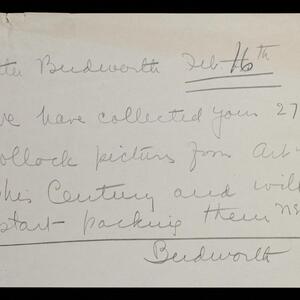 Budworth Feb 16th
have collected your 27
Pollock pictures from Art
this Century and will
start packing them
Budworth